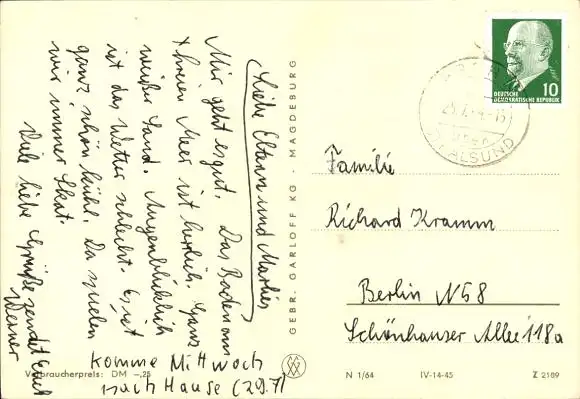 Liebe Eltern und Marlies
Mir geht es gut. Das Baden am
freien Meer ist herrlich. Ganz
weißer Sand. Augenblicklich
ist das Wetter schlecht. Es ist
ganz schön kühl. Da spielen
wir immer Skat.
Viele liebe Grüße sendet Euch
Werner
komme Mittwoch
nach Hause (29.7)
Verbraucherpreis: DM -,25
GEBR. GARLOFF KG · MAGDEBURG
10
DEUTSCHE
DEMOKRATISCHE REPUBLIK
STRALSUND
Familie
Richard Kramm
Berlin N58
Schönhauser Allee 118a
N 1/64 IV-14-45 Z 2189